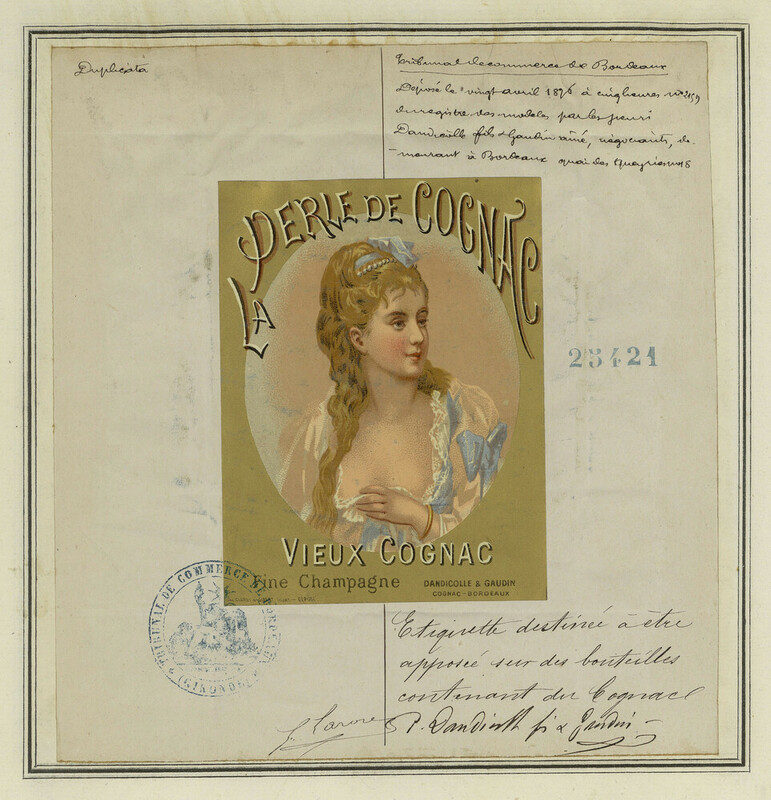 Duplicata
Tribunal de commerce de Bordeaux
Déposé le vingt avril 1876 à cinq heures nº 2159
du registre des modèles par les sieurs
Dandicolle fils & Gaudin aîné, négociants, de-
-meurant à Bordeaux quai des
LA PERLE DE COGNAC
25421
VIEUX COGNAC
Fine Champagne
DANDICOLLE & GAUDIN
COGNAC-BORDEAUX
TRIBUNAL DE COMMERCE DE BORDEAUX
(GIRONDE)
Etiquette destinée à être
apposée sur des bouteilles
contenant du Cognac
P. Dandicolle fs & Gaudin